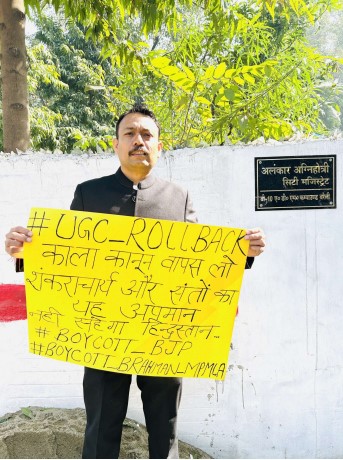 अलंकार अग्निहोत्री
सिटी मजिस्ट्रेट
#UGC_ROLLBACK
काला कानून वापस लो
शंकराचार्य और संतों का
यह अपमान
नहीं सहेगा हिन्दुस्तान..
#BOYCOTT_BJP
#BOYCOTT_BRAHMAN_MPMLA